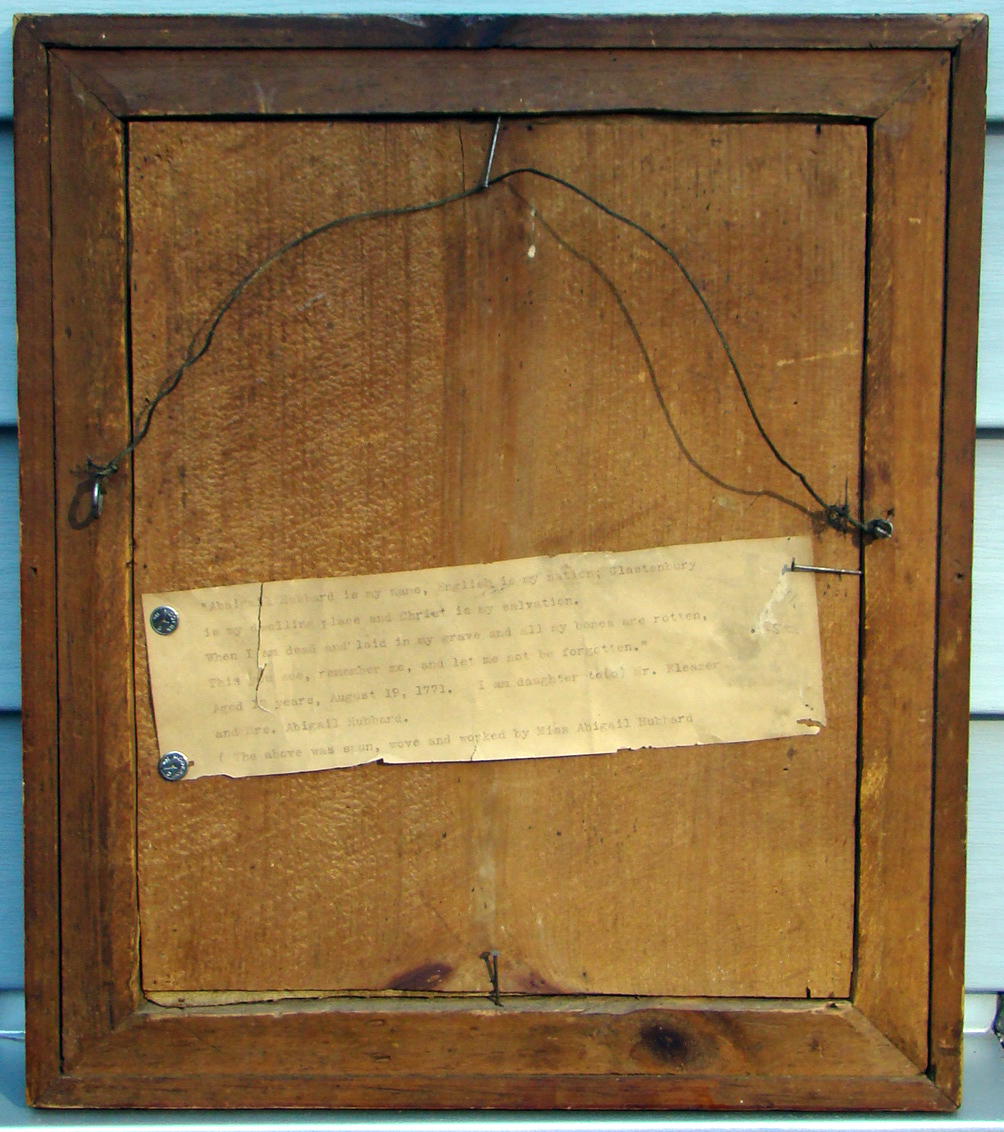 "Abaigail Hubbard is my name, English is my nation; Glastenbury
is my dwelling place and Christ is my salvation.
When I am dead and laid in my grave and all my bones are rotten,
This you see, remember me, and let me not be forgotten."
Aged years, August 19, 1771. I am daughter to(o) Mr. Eleazer
and Mrs. Abigail Hubbard.
( The above was spun, wove and worked by Miss Abigail Hubbard